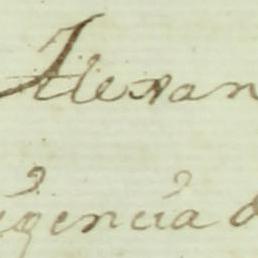 Alexan
igencia d